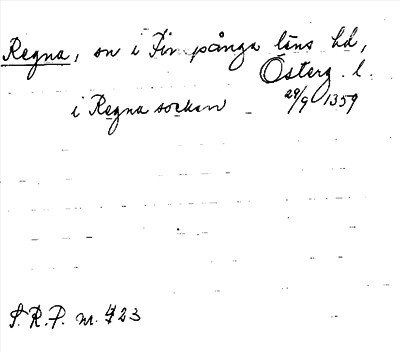 Regna, sn i Finspånga läns hd,
Österg. l.
i Regna socken 29/9 1359
S.R.P. nr. 423